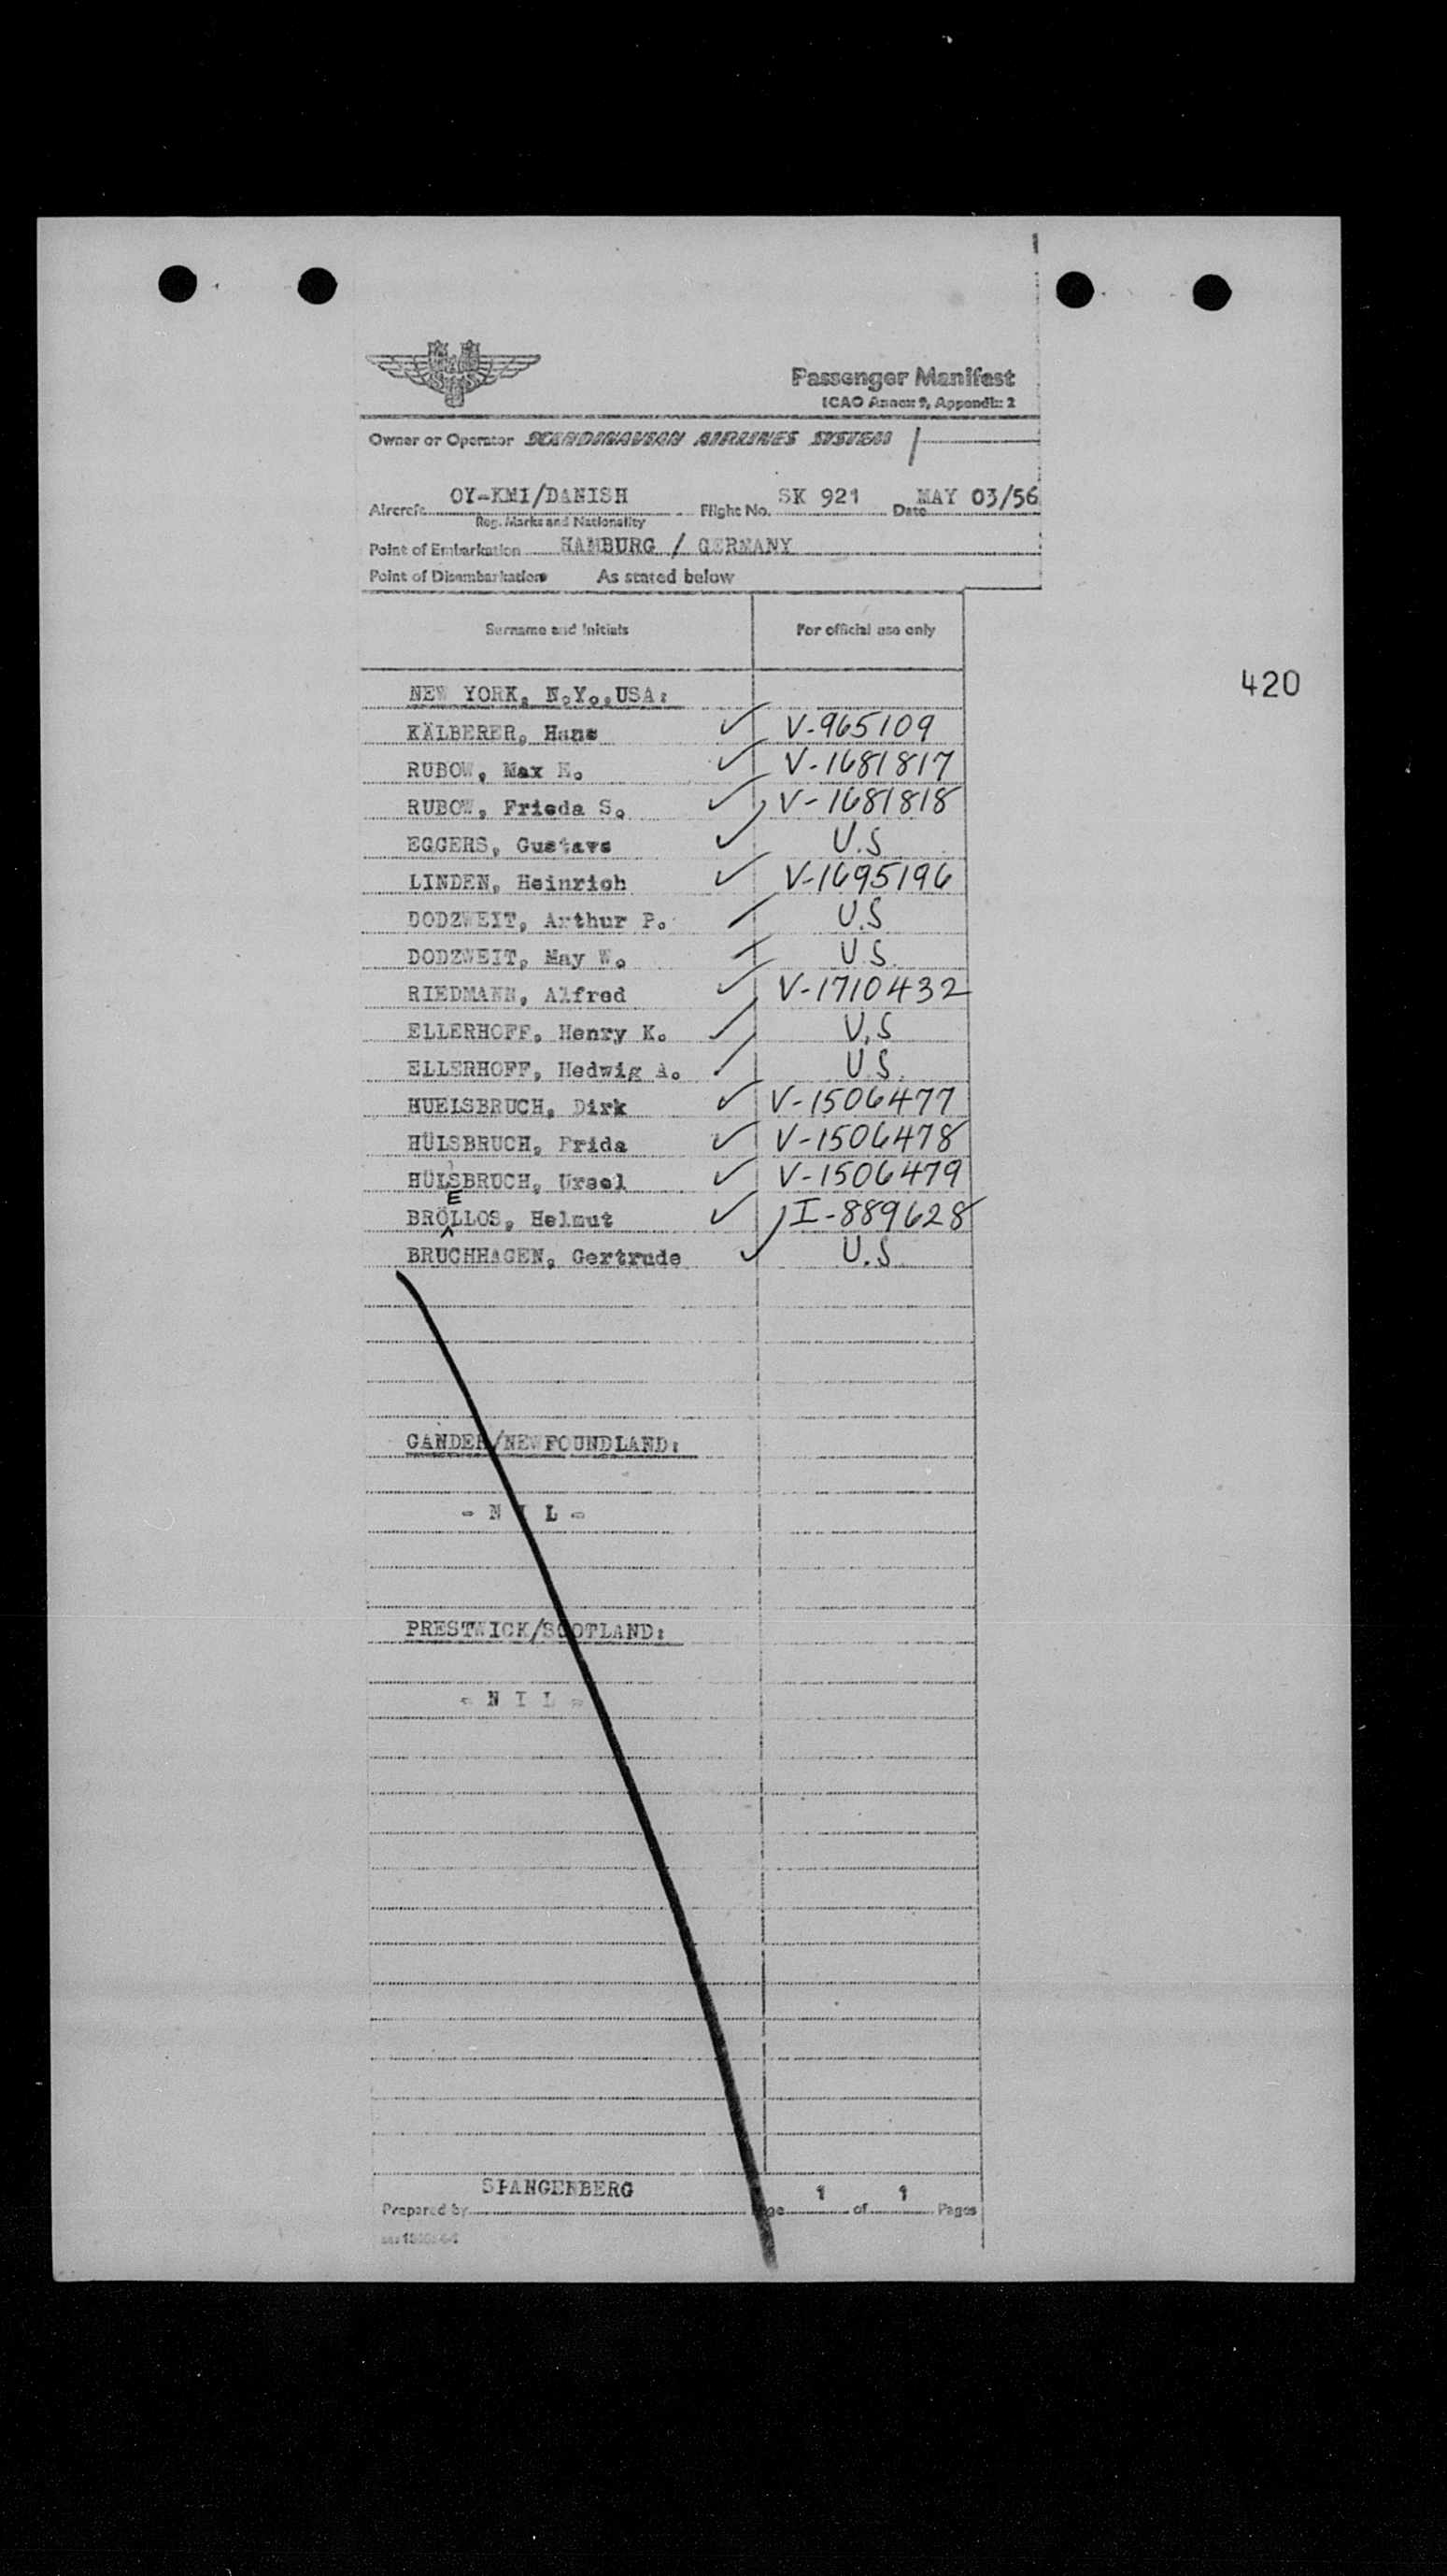 Passenger Manifest
ICAO Annex 9, Appendix 2
Owner or Operator SCANDINAVIAN AIRLINES SYSTEM
Aircraft OY-KMI/DANISH Flight No. SK 921 Date MAY 03/56
Reg. Marks and Nationality
Point of Embarkation HAMBURG / GERMANY
Point of Disembarkation As stated below
Surname and Initials For official use only
420
NEW YORK, N.Y.,USA:
KÄLBERER, Hans ✓ V-965109
RUBOW, Max E. ✓ V-1681817
RUBOW, Frieda S. ✓ V-1681818
EGGERS, Gustave ✓ U.S
LINDEN, Heinrich ✓ V-1695196
DODZWEIT, Arthur P. ✓ U.S
DODZWEIT, May W. ✓ U.S.
RIEDMANN, Alfred ✓ V-1710432
ELLERHOFF, Henry K. ✓ U.S
ELLERHOFF, Hedwig A. ✓ U.S.
HUELSBRUCH, Dirk ✓ V-1506477
HÜLSBRUCH, Frida ✓ V-1506478
HÜLSBRUCH, Ursel ✓ V-1506479
E
BRÖLLOS, Helmut ✓ I-889628
BRUCHHAGEN, Gertrude ✓ U.S.
GANDER/NEWFOUNDLAND:
- N I L -
PRESTWICK/SCOTLAND:
- N I L -
SPANGENBERG
Prepared by Page 1 of 1 Pages